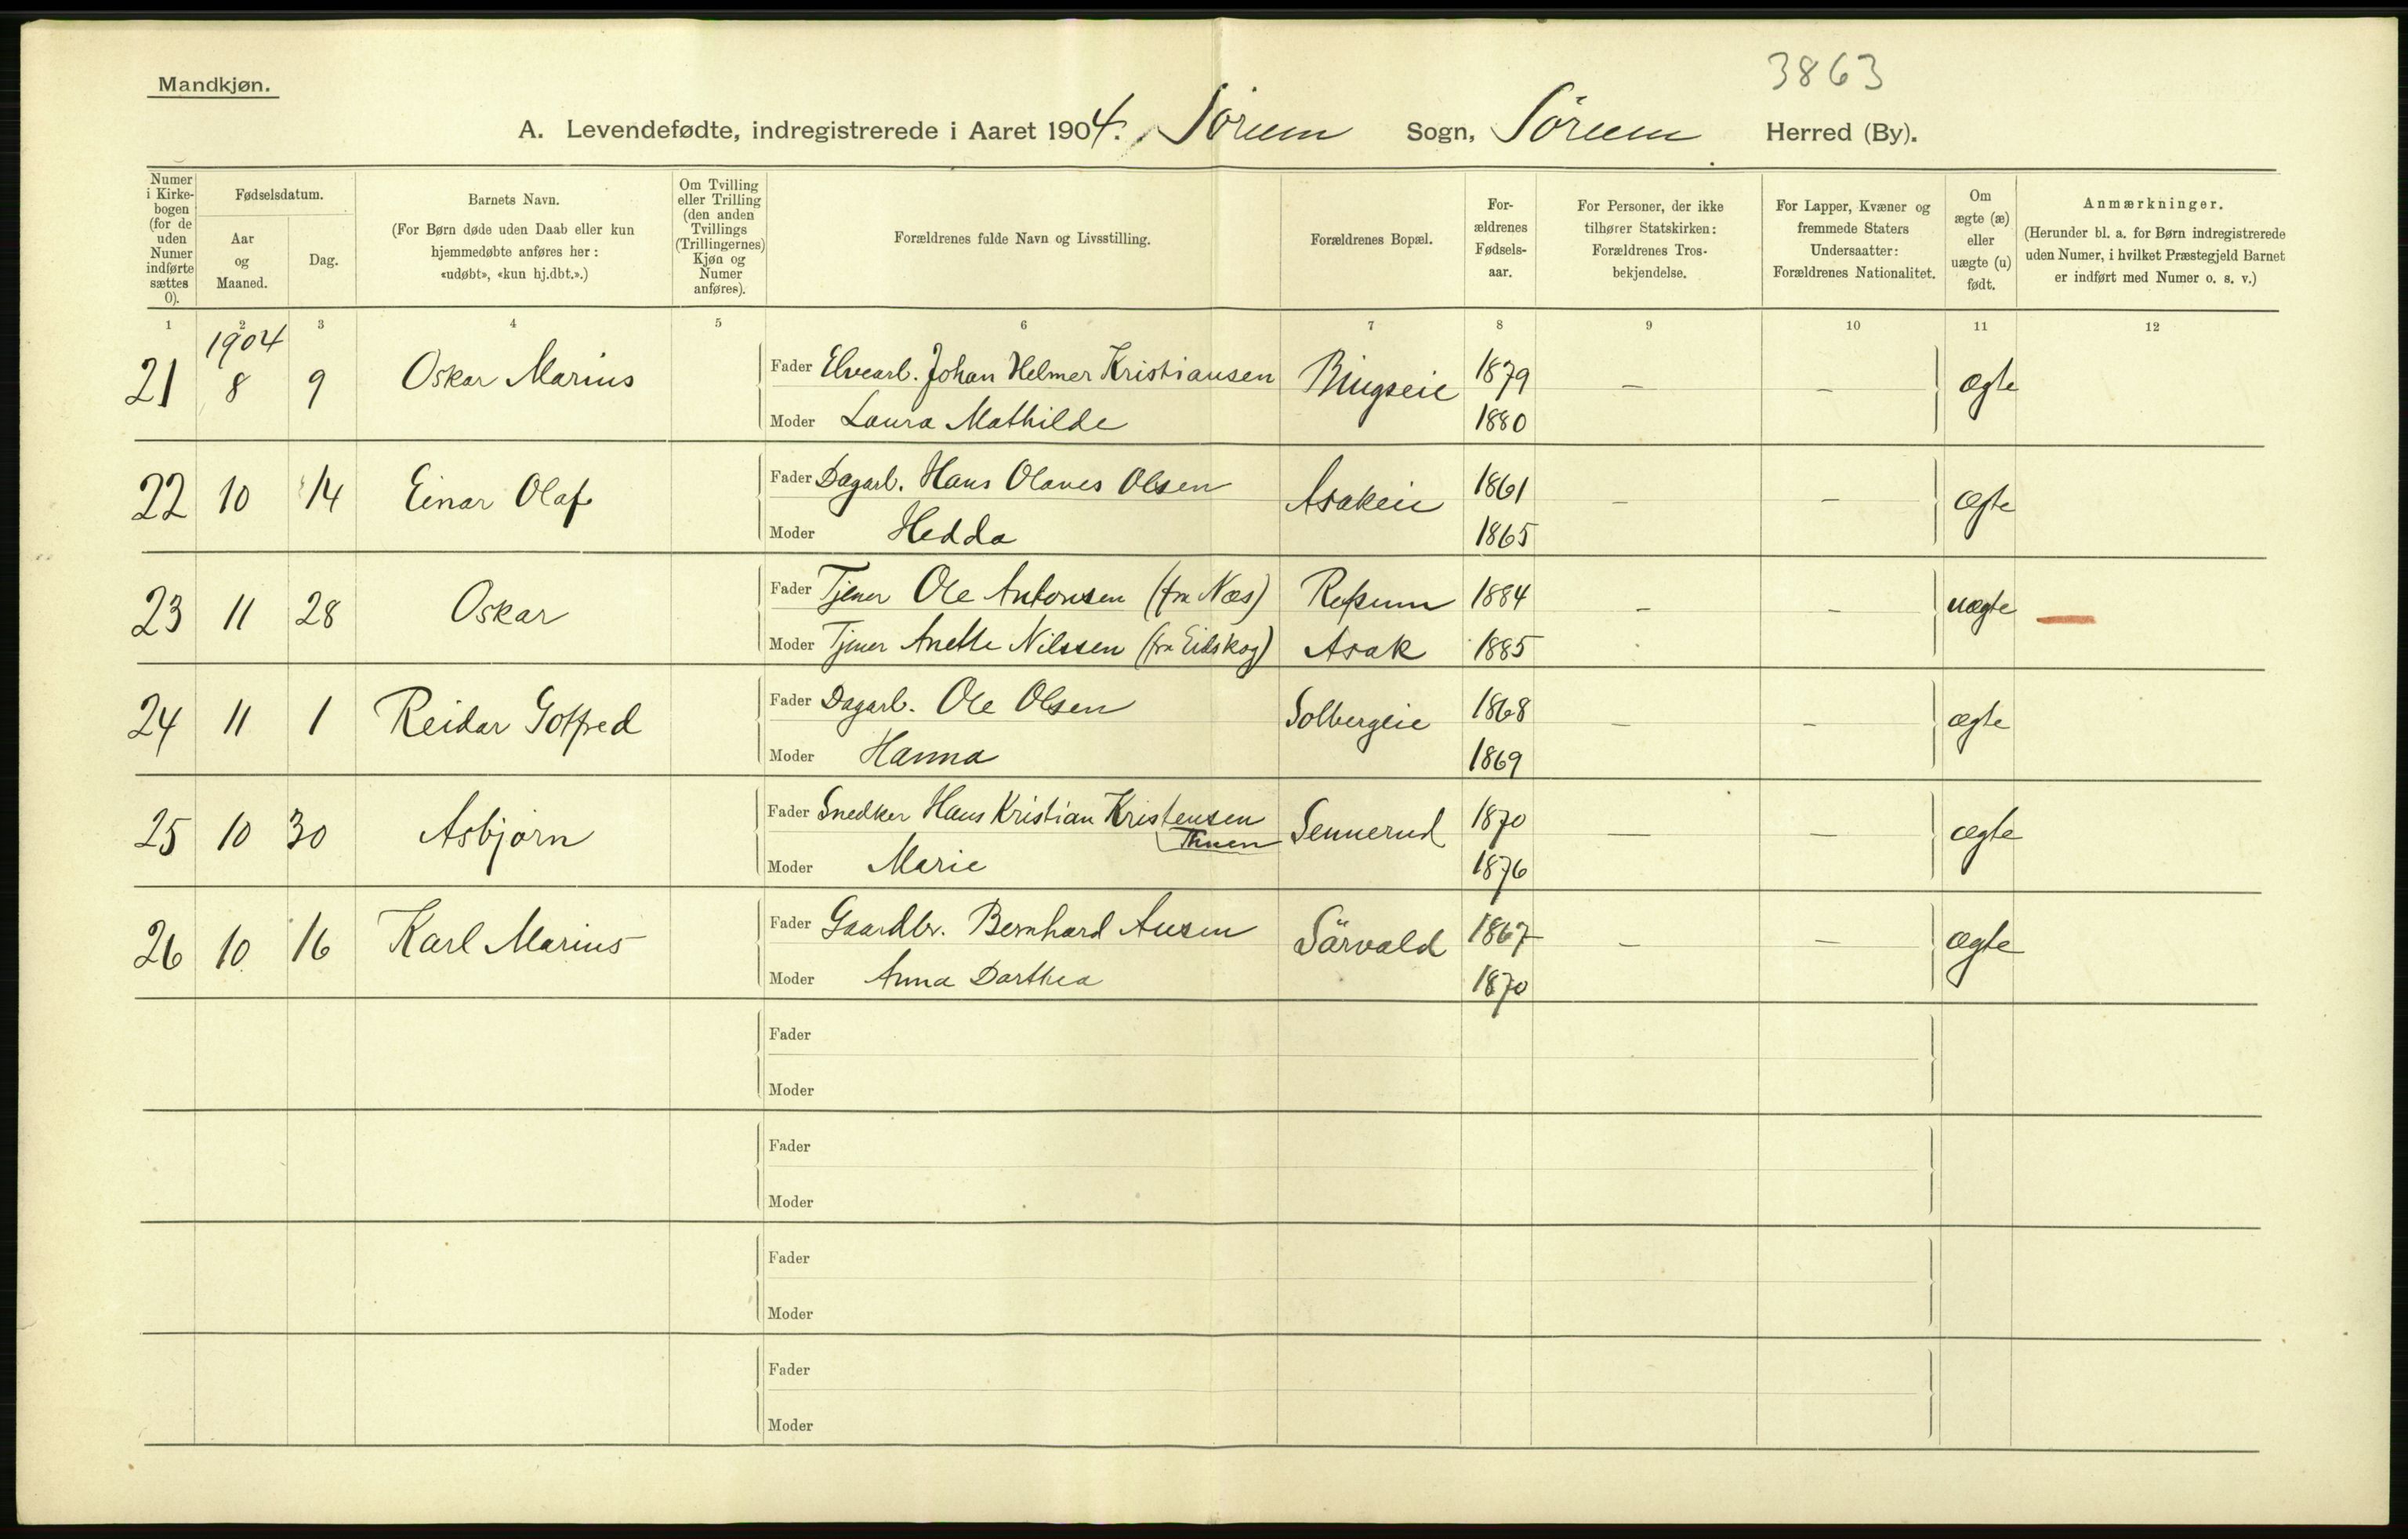 3863
Mandkjøn.
A. Levendefødte, indregistrerede i Aaret 1904. Sørum Sogn, Sørum Herred (By).
Numer i Kirkebogen (for de uden Numer indførte sættes 0).
Fødselsdatum.
Aar og Maaned.
Dag.
Barnets Navn.
(For Børn døde uden Daab eller kun hjemmedøbte anføres her: «udøbt», «kun hj.dbt.».)
Om Tvilling eller Trilling (den anden Tvillings (Trillingernes) Kjøn og Numer anføres).
Forældrenes fulde Navn og Livsstilling.
Forældrenes Bopæl.
Forældrenes Fødselsaar.
For Personer, der ikke tilhører Statskirken: Forældrenes Trosbekjendelse.
For Lapper, Kvæner og fremmede Staters Undersaatter: Forældrenes Nationalitet.
Om ægte (æ) eller uægte (u) født.
Anmærkninger.
(Herunder bl. a. for Børn indregistrerede uden Numer, i hvilket Præstegjeld Barnet er indført med Numer o. s. v.)
1 2 3 4 5 6 7 8 9 10 11 12
1904
21 8 9 Oskar Marius Fader Elvearb. Johan Helmer Kristiansen Bingseie 1879 – – ægte
Moder Laura Mathilde 1880
22 10 14 Einar Olaf Fader Dagarb. Hans Olaves Olsen Asakeie 1861 – – ægte
Moder Hedda 1865
23 11 28 Oskar Fader Tjener Ole Antonsen (fra Næs) Refsum 1884 – – uægte
Moder Tjener Anette Nilssen (fra Eidskog) Asak 1885
24 11 1 Reidar Gotfred Fader Dagarb. Ole Olsen Solbergeie 1868 – – ægte
Moder Hanna 1869
25 10 30 Asbjørn Fader Snedker Hans Kristian Kristensen Sennerud 1870 — – ægte
Thuen
Moder Marie 1876
26 10 16 Karl Marius Fader Gaardbr. Bernhard Ausen Sårvald 1867 – – ægte
Moder Anna Dorthea 1870
Fader
Moder
Fader
Moder
Fader
Moder
Fader
Moder